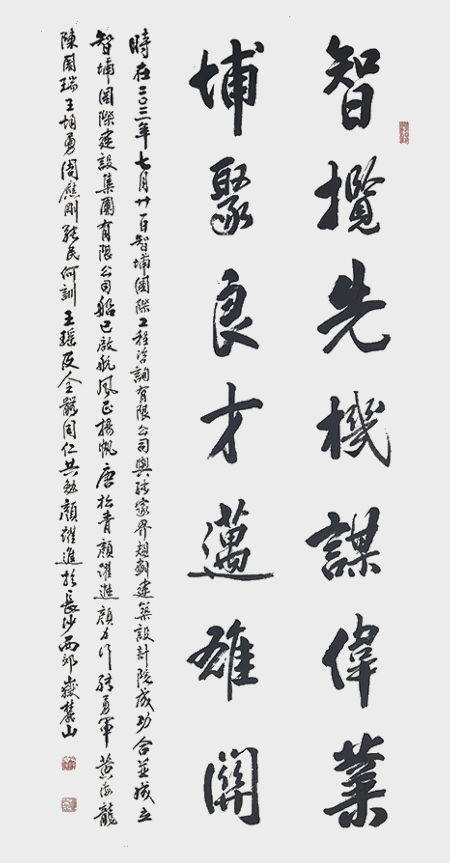 智攬先機謀偉業
埔聚良才邁雄關
時在二〇二三年七月廿一日智埔國際工程咨詢有限公司與張家界楚韻建築設計院成功合並成立
智埔國際建設集團有限公司船已啟航風正揚帆唐松青顏躍進顏友行張勇軍黃海龍
陳國瑞王胡勇周應剛張民何訓王瑶及全體同仁共勉顏躍進於長沙西郊嶽麓山